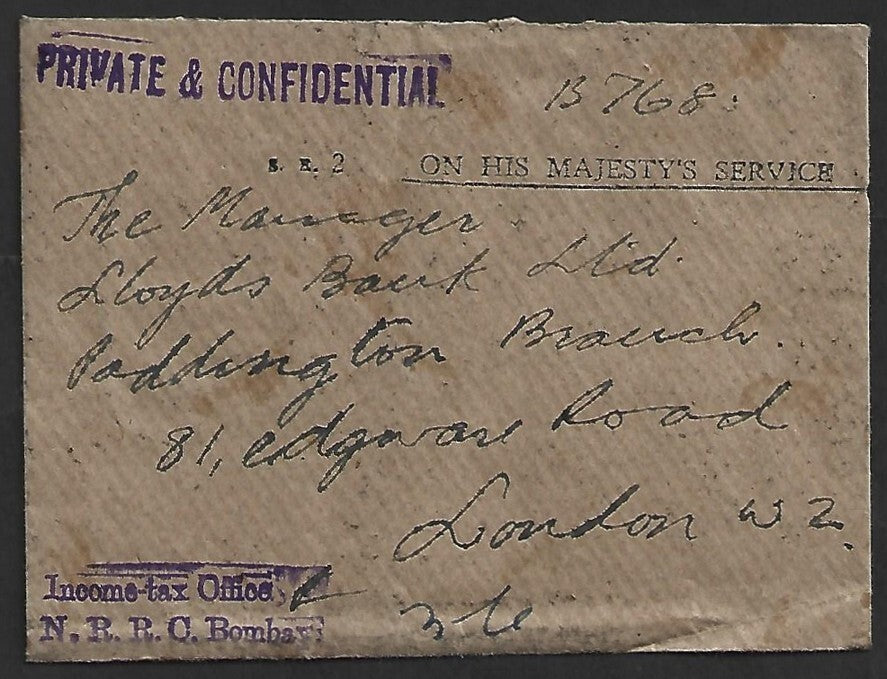 PRIVATE & CONFIDENTIAL
B 768.
S. E. 2 ON HIS MAJESTY'S SERVICE
The Manager
Lloyds Bank Ltd.
Paddington Branch.
81, Edgware Road
London W 2.
Income-tax Office,
N. R. R. C. Bombay